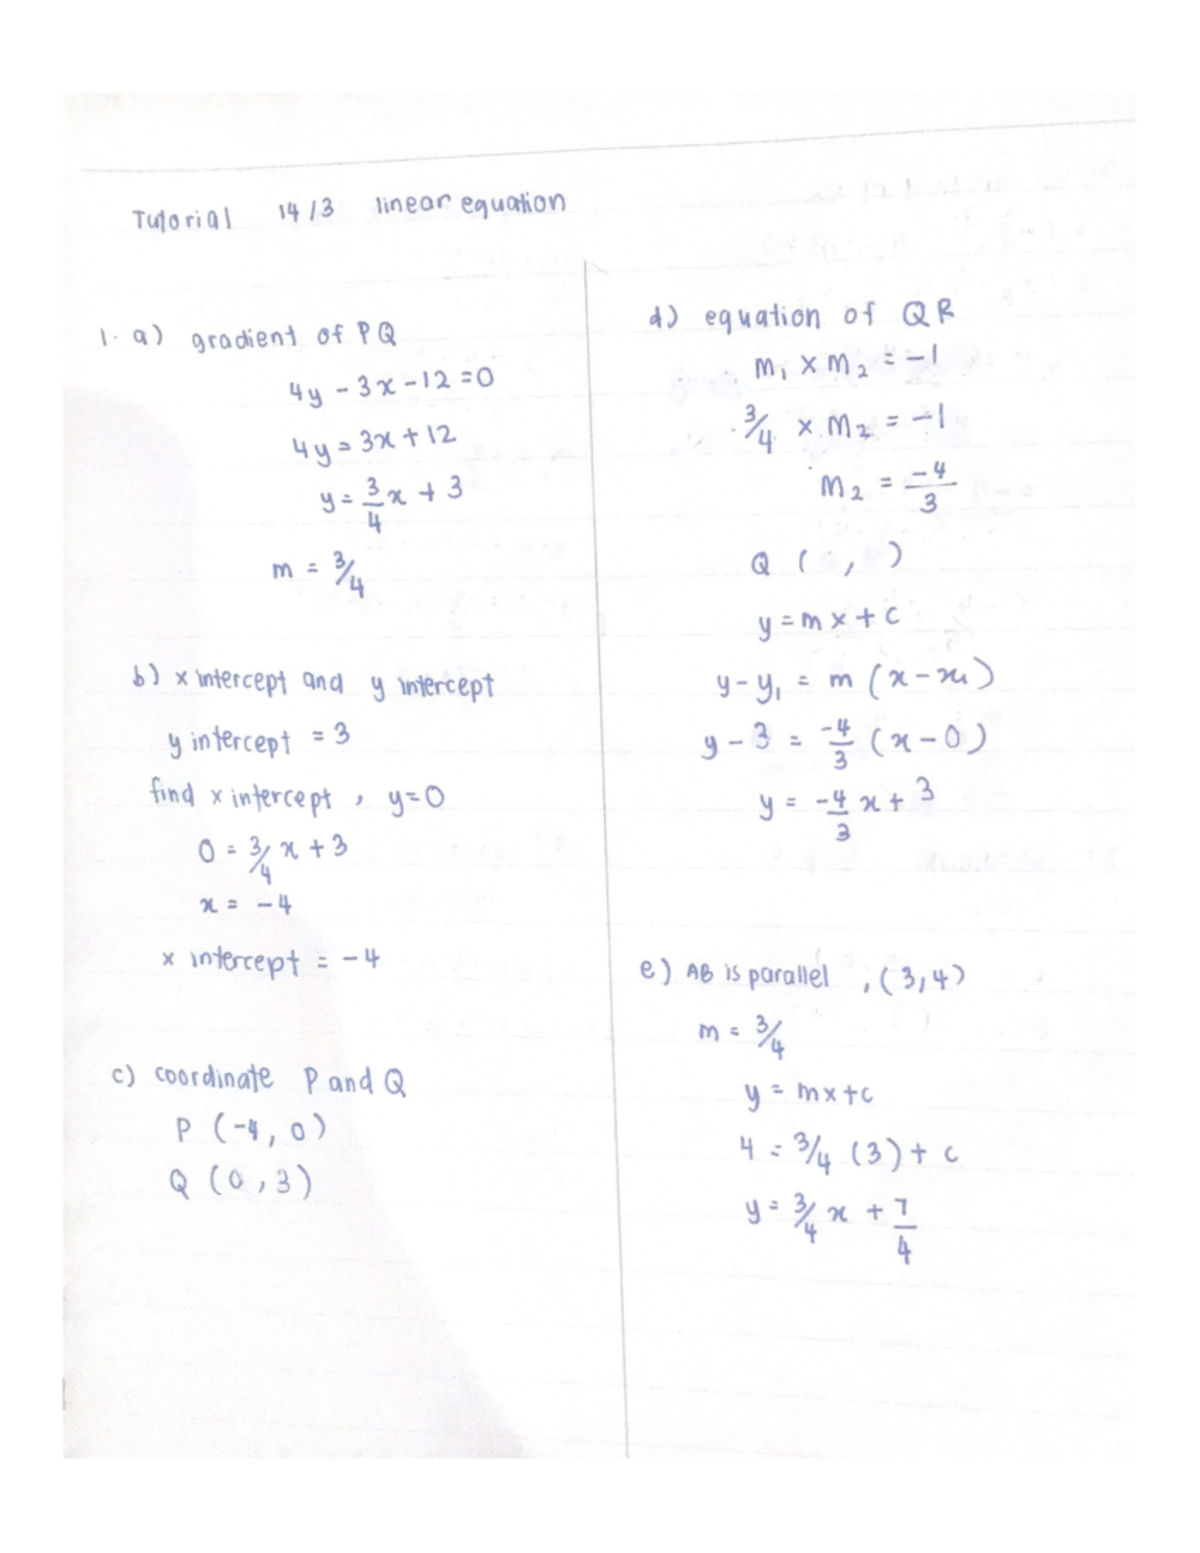 Tutorial 14/3 linear equation
1. a) gradient of PQ
4y - 3x - 12 = 0
4y = 3x + 12
y = 3/4 x + 3
m = 3/4
b) x intercept and y intercept
y intercept = 3
find x intercept , y = 0
0 = 3/4 x + 3
x = -4
x intercept = -4
c) coordinate P and Q
P (-4, 0)
Q (0, 3)
d) equation of QR
m₁ x m₂ = -1
3/4 x m₂ = -1
m₂ = -4/3
Q ( , )
y = mx + c
y - y₁ = m (x - x₁)
y - 3 = -4/3 (x - 0)
y = -4/3 x + 3
e) AB is parallel , (3,4)
m = 3/4
y = mx + c
4 = 3/4 (3) + c
y = 3/4 x + 7/4